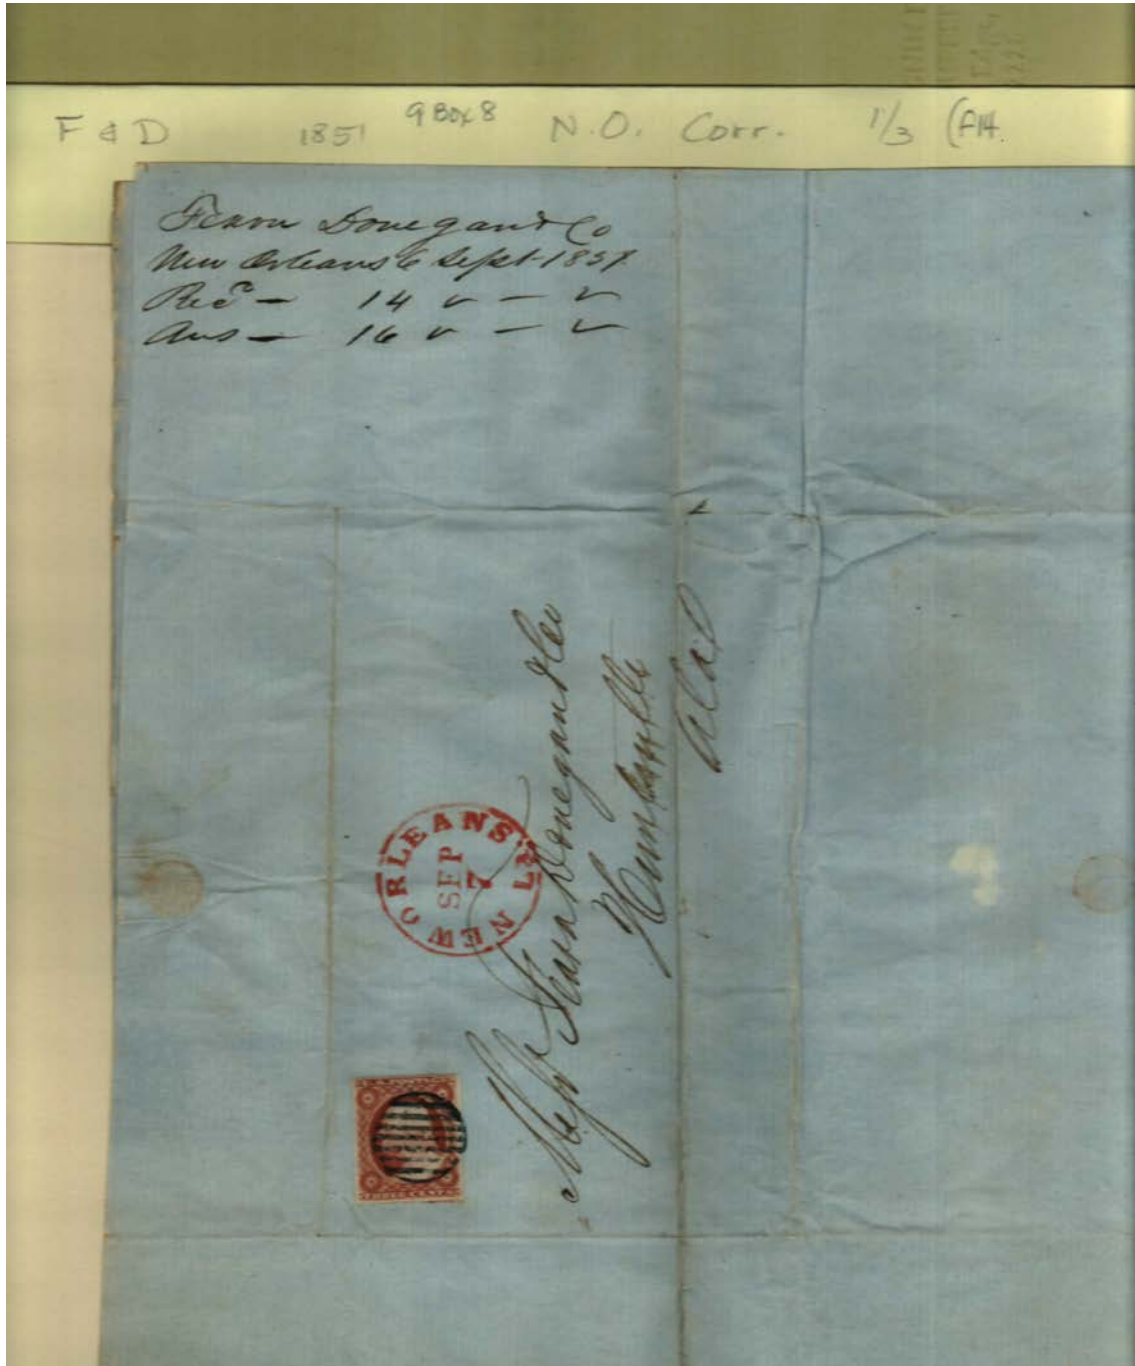 F & D 1851 9 Box 8 N.O. Corr. 1/3 (F14.
Fearn Donegan & Co
New Orleans 6 Sept 1851
Recd — 14 " — "
Ans — 16 " — "
NEW ORLEANS La
SEP
7
Messrs Fearn Donegan & Co
Huntsville
Ala
THREE CENTS